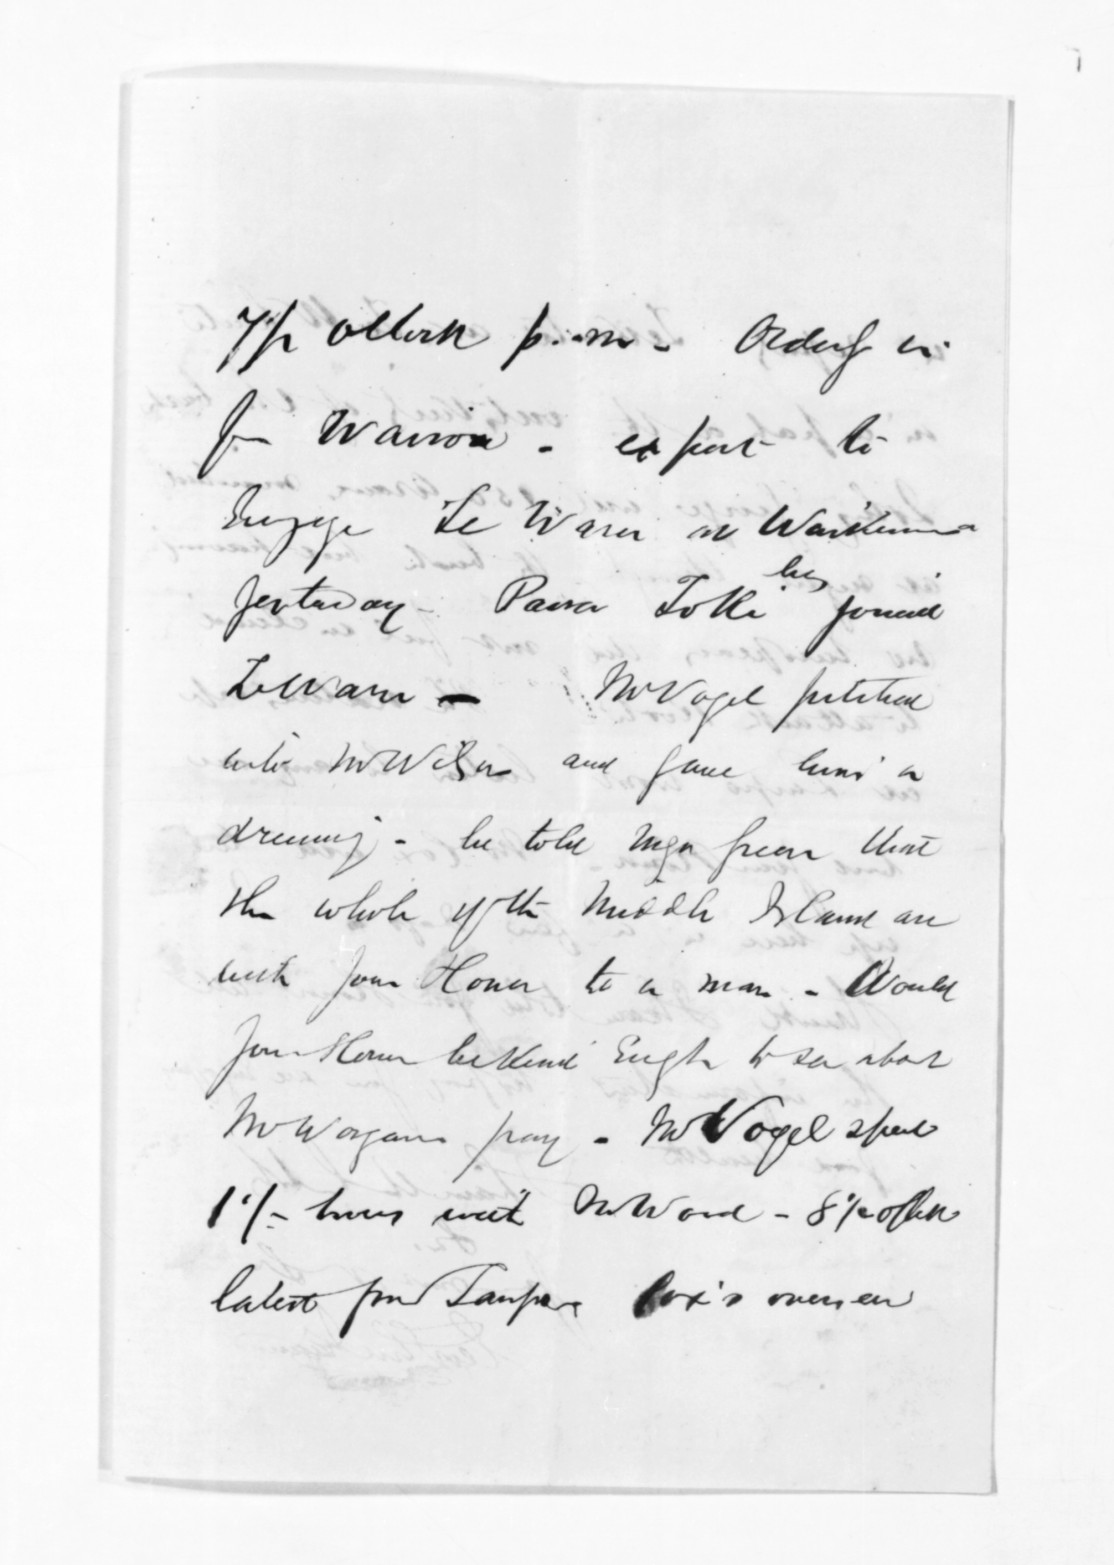 7½ oClock p.m. - Orderly in
from Wairoa - expect to
Engage Te Waru at Waikare
yesterday - Paora Toki has joined
Te Waru - Mr Vogel pitched
into Mr Wilson and gave him a
dressing - he told Mr that
the whole of the Middle Island are
with your Honor to a man - Would
your Honor be kind Enough to see about
Mr Worgans pay - Mr Vogel spent
1½ hours with Mr Ward - 8½ oClock
latest from Taupo Cox's overseer